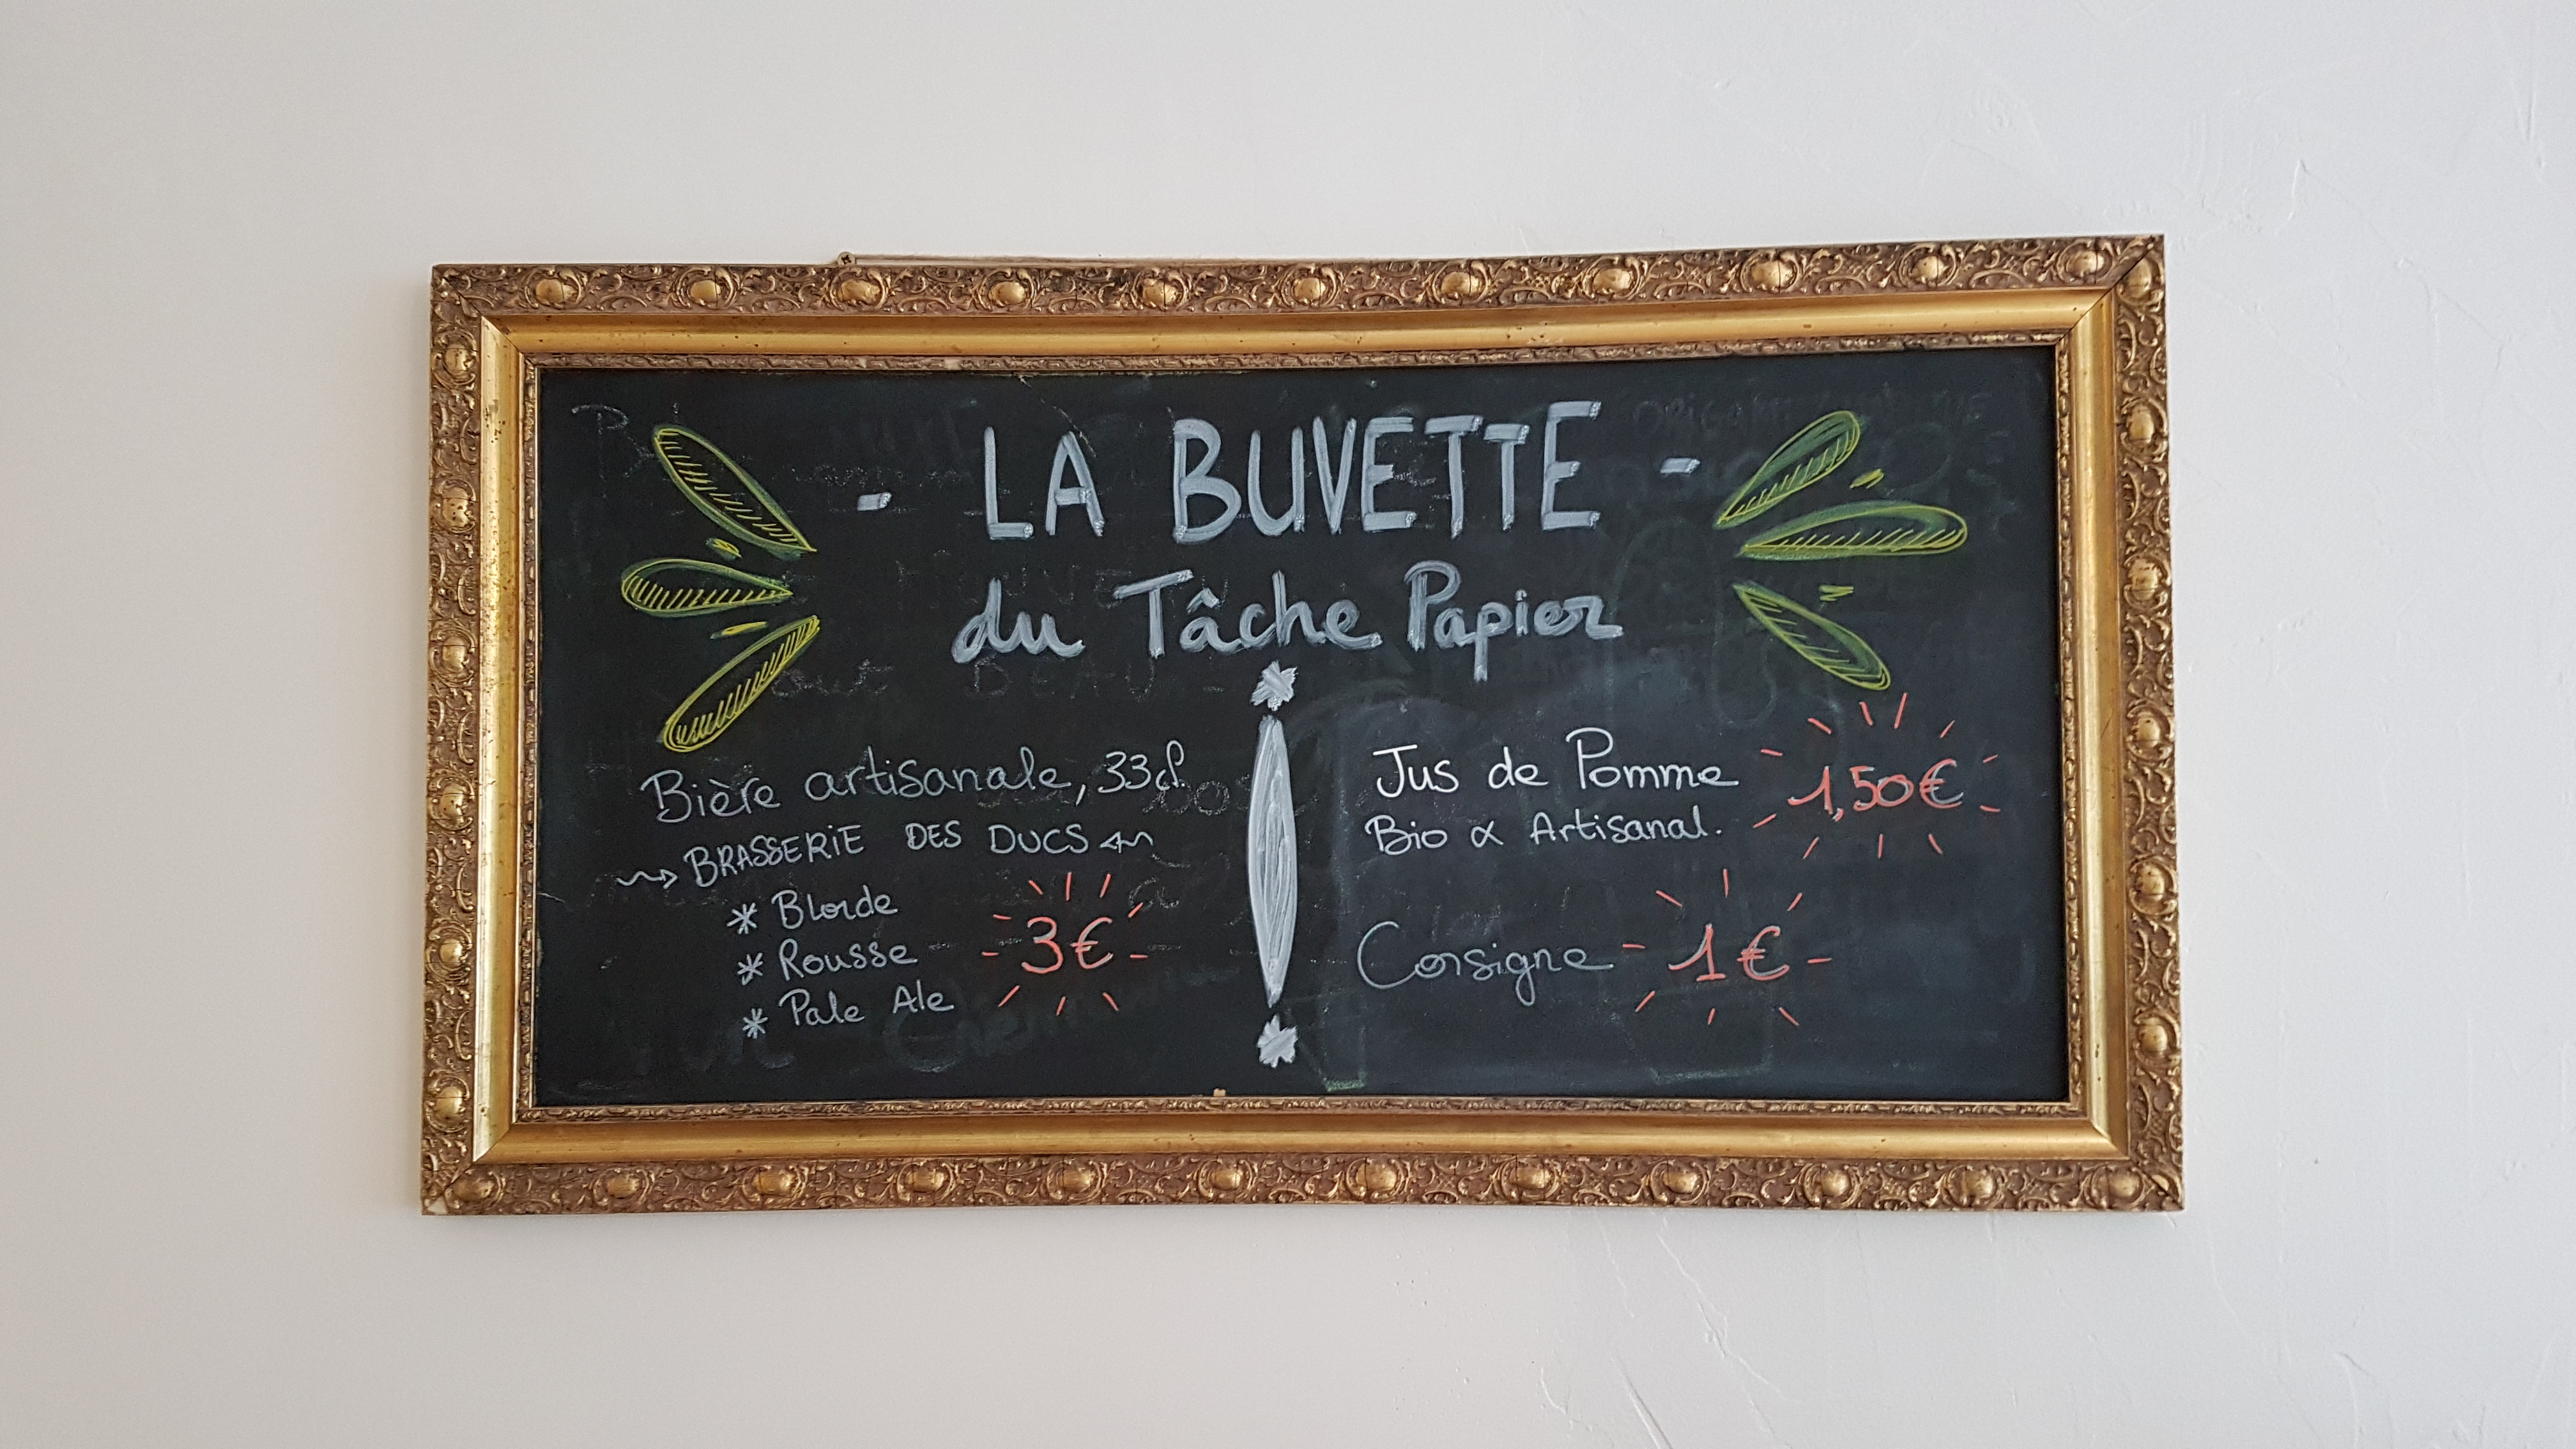 - LA BUVETTE -
du Tâche Papier
Bière artisanale, 33cl.
BRASSERIE DES DUCS
* Blonde
* Rousse
* Pale Ale
3€
Jus de Pomme
Bio & Artisanal.
1,50€
Consigne
1€